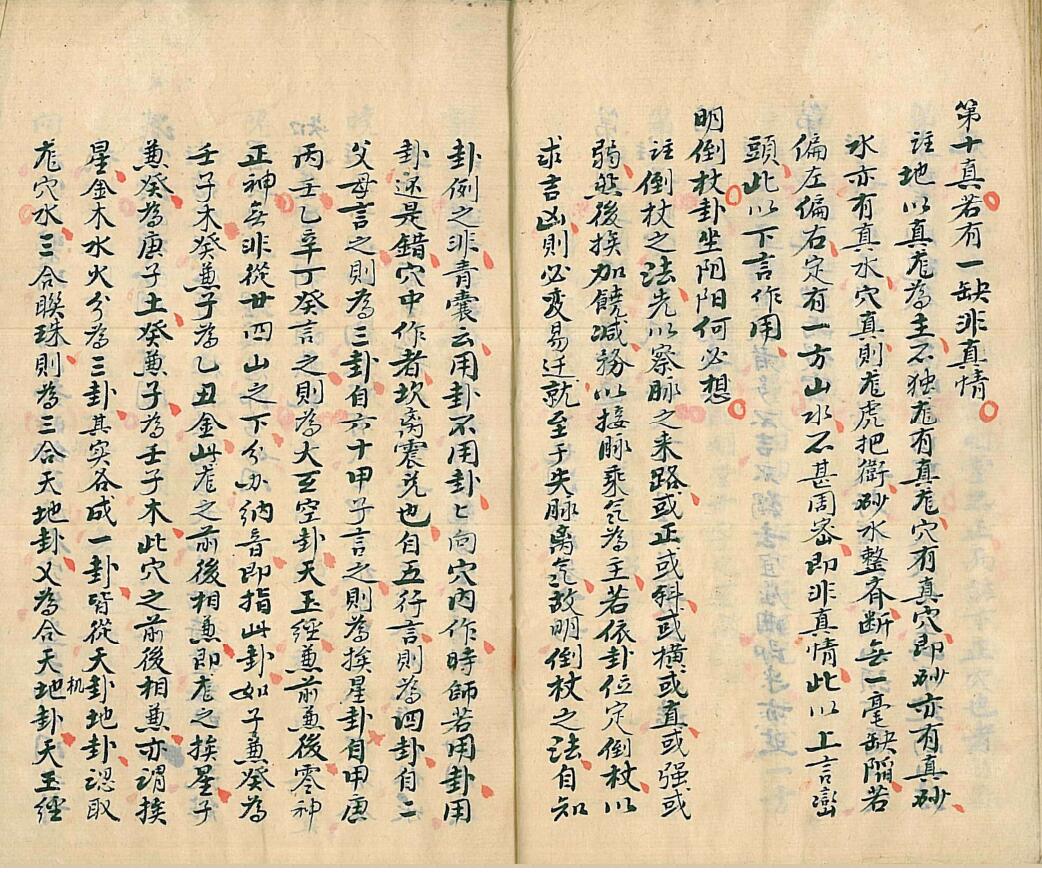 第十真若有一缺非真情
註地以真龙為主不独龙有真龙穴有真穴即砂亦有真砂
水亦有真水穴真則龙虎把衛砂水整齐断無一毫缺陷若
偏左偏右定有一方山水不甚周密即非真情此以上言巒
頭此以下言作用
明倒杖卦坐阴阳何必想
註倒杖之法先以察脉之来路或正或斜或横或直或强或
弱然後挨加饒减務以接脉乘气為主若依卦位定倒杖以
求吉凶則必变易迁就至于失脉离气故明倒杖之法自知
卦例之非青囊云用卦不用卦七向穴内作時師若用卦用
卦还是錯穴中作者坎离震兑也自五行言則為四卦自二
父母言之則為三卦自六十甲子言之則為挨星卦自甲庚
丙壬乙辛丁癸言之則為大玄空卦天玉經兼前兼後零神
正神無非從廿四山之下分办納音即指此卦如子兼癸為
壬子木癸兼子為乙丑金此龙之前後相兼即龙之挨星子
兼癸為庚子土癸兼子為壬子木此穴之前後相兼亦謂挨
星金木水火分為三卦其实各成一卦皆從天卦地卦認取
机
龙穴水三合聯珠則為三合天地卦又為合天地卦天玉經